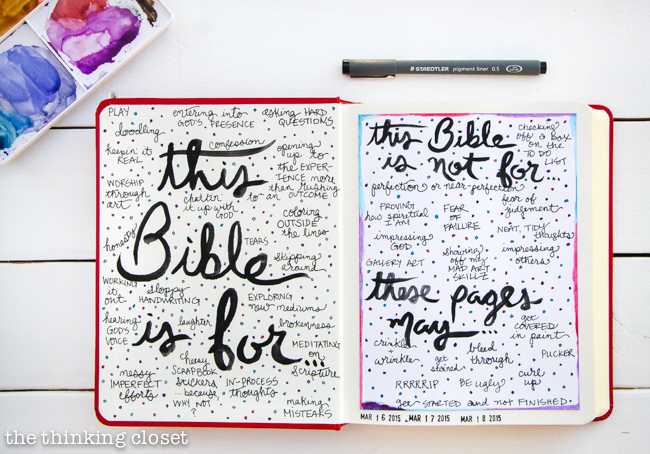 STAEDTLER pigment liner 0.5
PLAY
entering into
GOD'S PRESENCE
asking HARD
QUESTIONS
doodling
confession
keepin it
REAL
this
opening
up to
the EXPER-
IENCE more
than rushing
to an OUTCOME
WORSHIP
through
art
chattin
it up with
GOD
coloring
OUTSIDE
the lines
honesty
Bible
TEARS
skipping
around
WORKING
it
out
sloppy
HANDWRITING
EXPLORING
new mediums
hearing
GOD'S
VOICE
laughter
is for...
brokenness
MEDITATING
on
Scripture
messy
IMPERFECT
efforts
cheesy
SCRAPBOOK
stickers
because
WHY NOT
?
IN-PROCESS
thoughts
making
MISTEAKS
this Bible
is not for...
checking
off a box
on the
TO DO
LIST
perfection or near-perfection
fear of
judgement
PROVING
how spiritual
I AM
FEAR
OF
FAILURE
NEAT, TIDY
thoughts
impressing
GOD
GALLERY ART
showing
off my
MAD ART
SKILLZ
impressing
others
these pages
may...
get
COVERED
in paint
crinkle
wrinkle
get
stained
bleed
through
PUCKER
RRRRRIP
BE ugly
curl
up
get STARTED and not FINISHED.
MAR 16 2015
MAR 17 2015
MAR 18 2015
the thinking closet